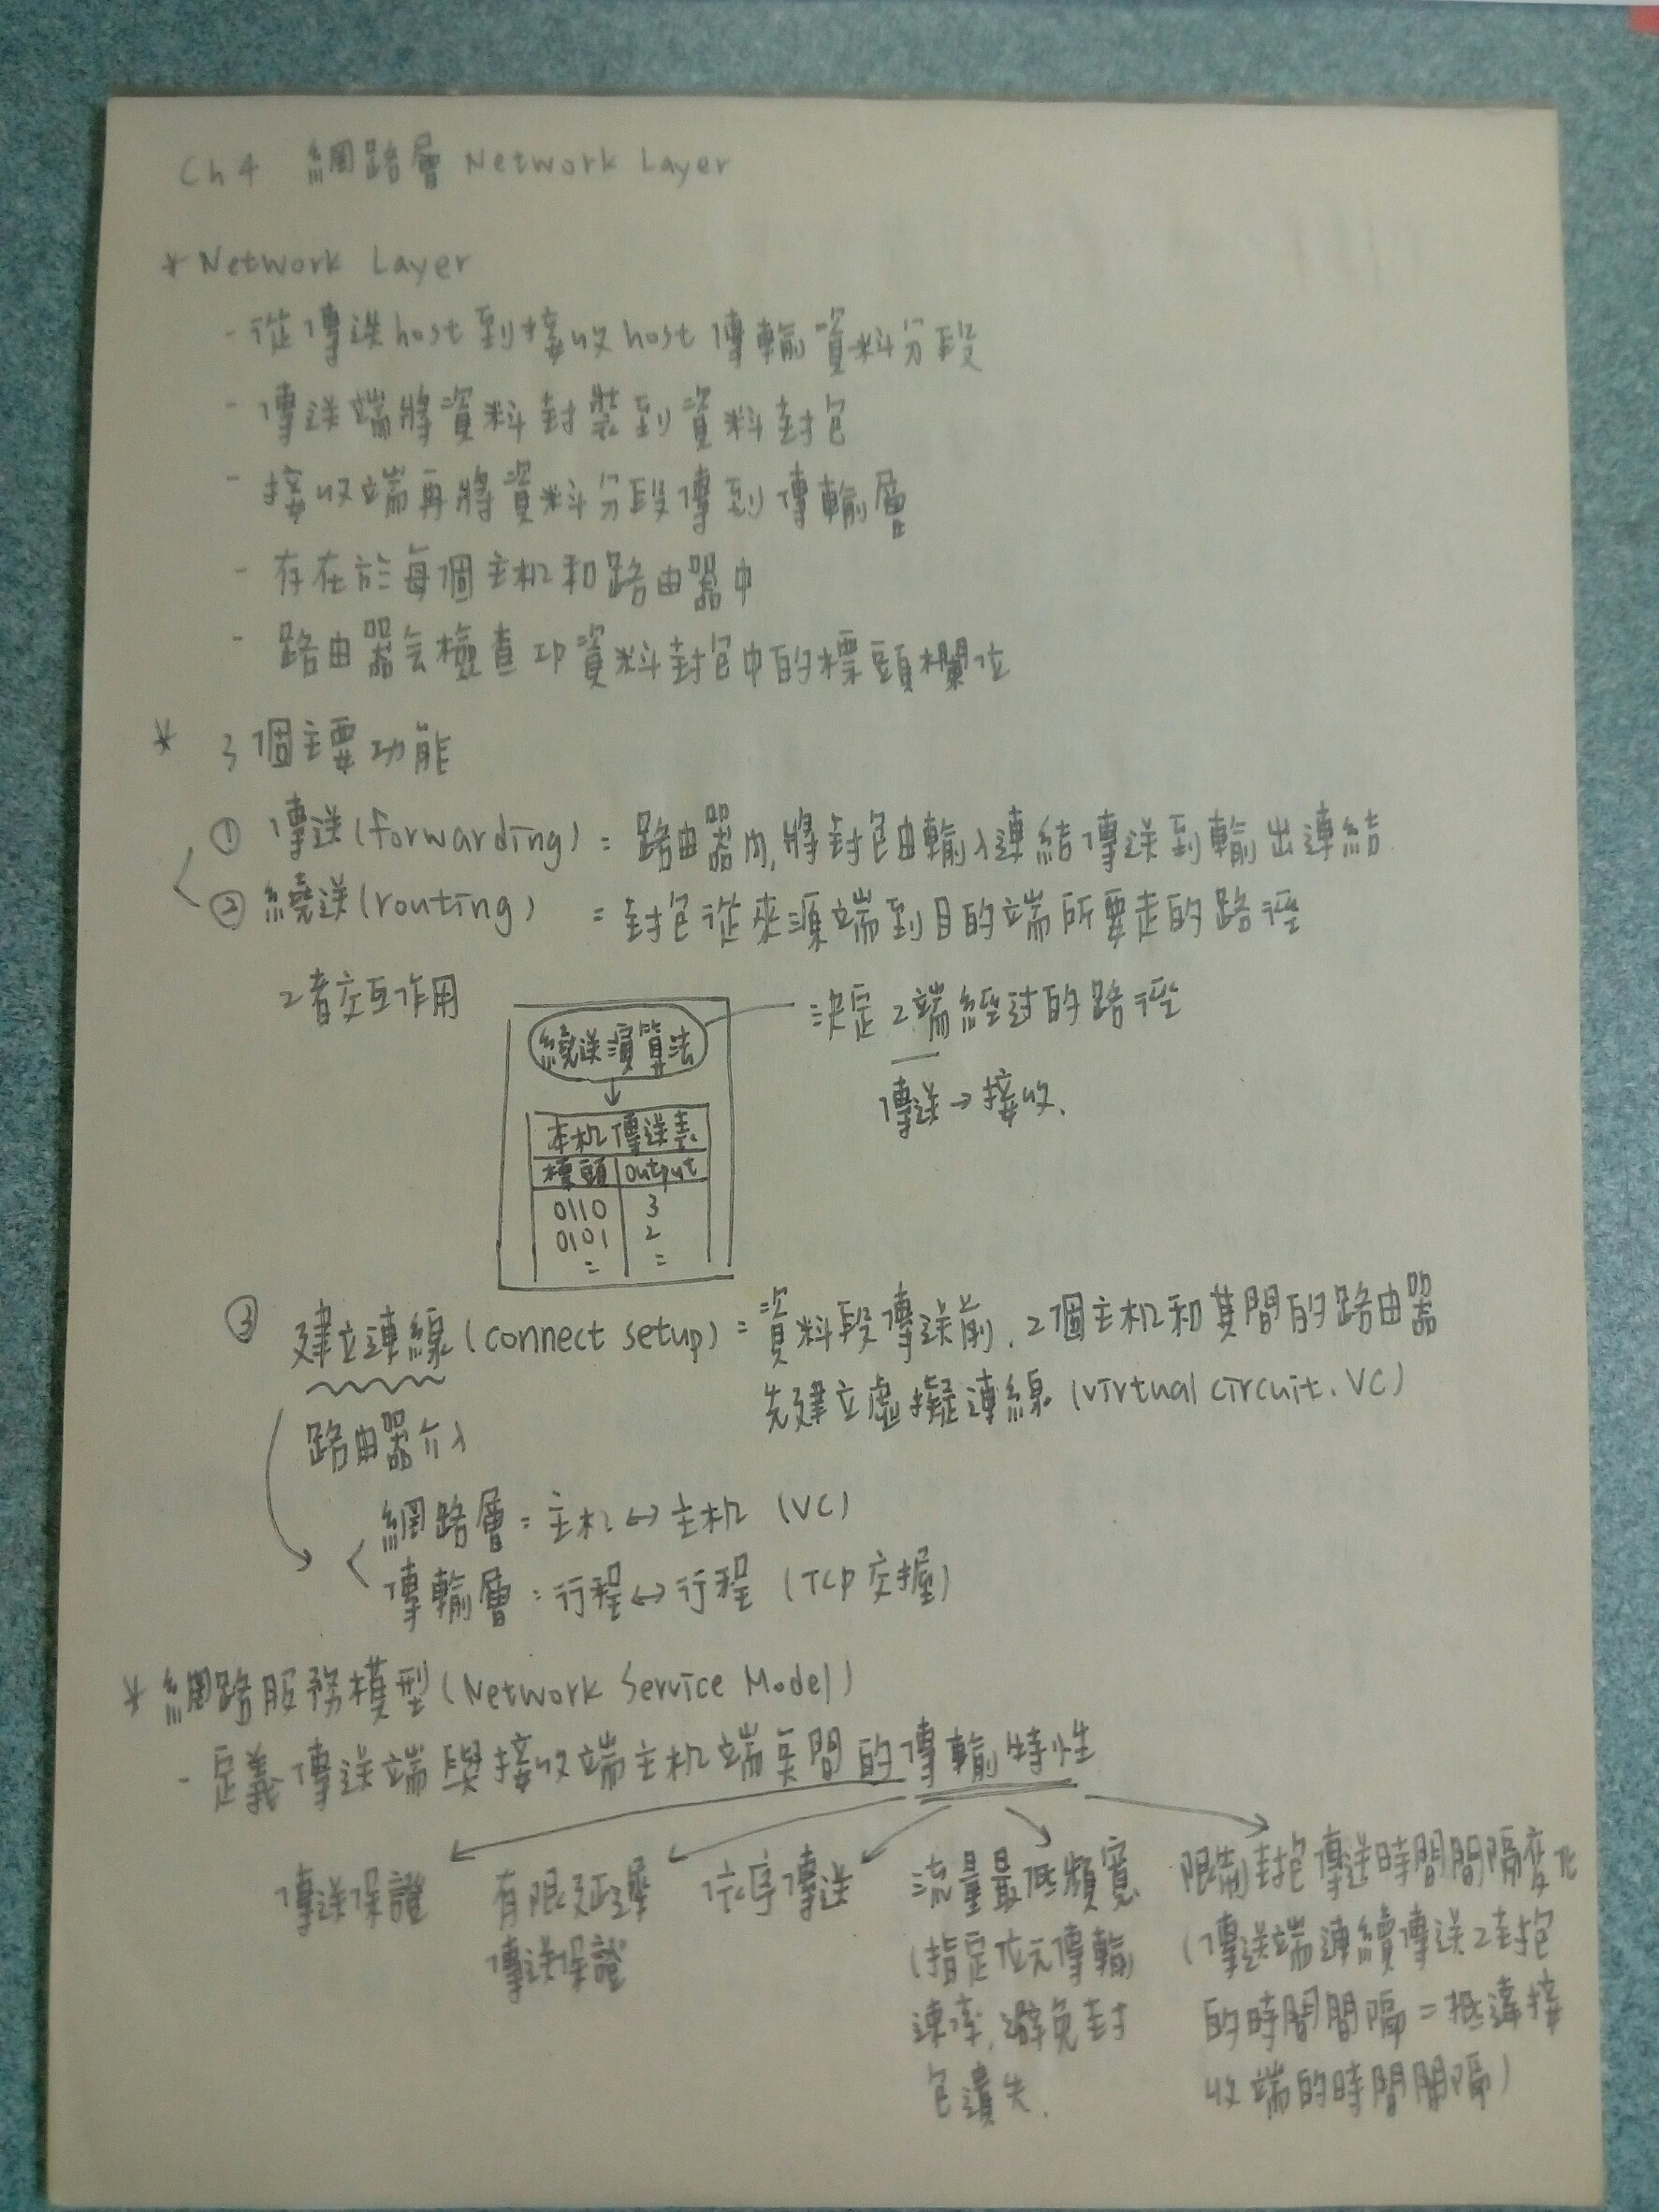 Ch4 網路層 Network Layer
* Network Layer
- 從傳送host到接收host傳輸資料分段
- 傳送端將資料封裝到資料封包
- 接收端再將資料分段傳到傳輸層
- 存在於每個主机和路由器中
- 路由器会檢查IP資料封包中的標頭欄位
* 3個主要功能
① 傳送(forwarding) = 路由器內,將封包由輸入連結傳送到輸出連結
② 繞送(routing) = 封包從來源端到目的端所要走的路徑
2者交互作用
繞送演算法
決定2端經过的路徑
傳送→接收.
本机傳送表
標頭 output
0110 3
0101 2
= =
③ 建立連線(connect setup) = 資料段傳送前.2個主机和其間的路由器
先建立虛擬連線(virtual circuit.VC)
路由器介入
網路層:主机↔主机 (VC)
傳輸層:行程↔行程 (TCP交握)
* 網路服務模型(Network Service Model)
- 定義傳送端與接收端主机端点間的傳輸特性
傳送保證
有限延遲
傳送保證
依序傳送
流量最低頻寬
(指定位元傳輸
速率.避免封
包遺失.
限制封包傳送時間間隔變化
(傳送端連續傳送2封包
的時間間隔=抵達接
收端的時間間隔)